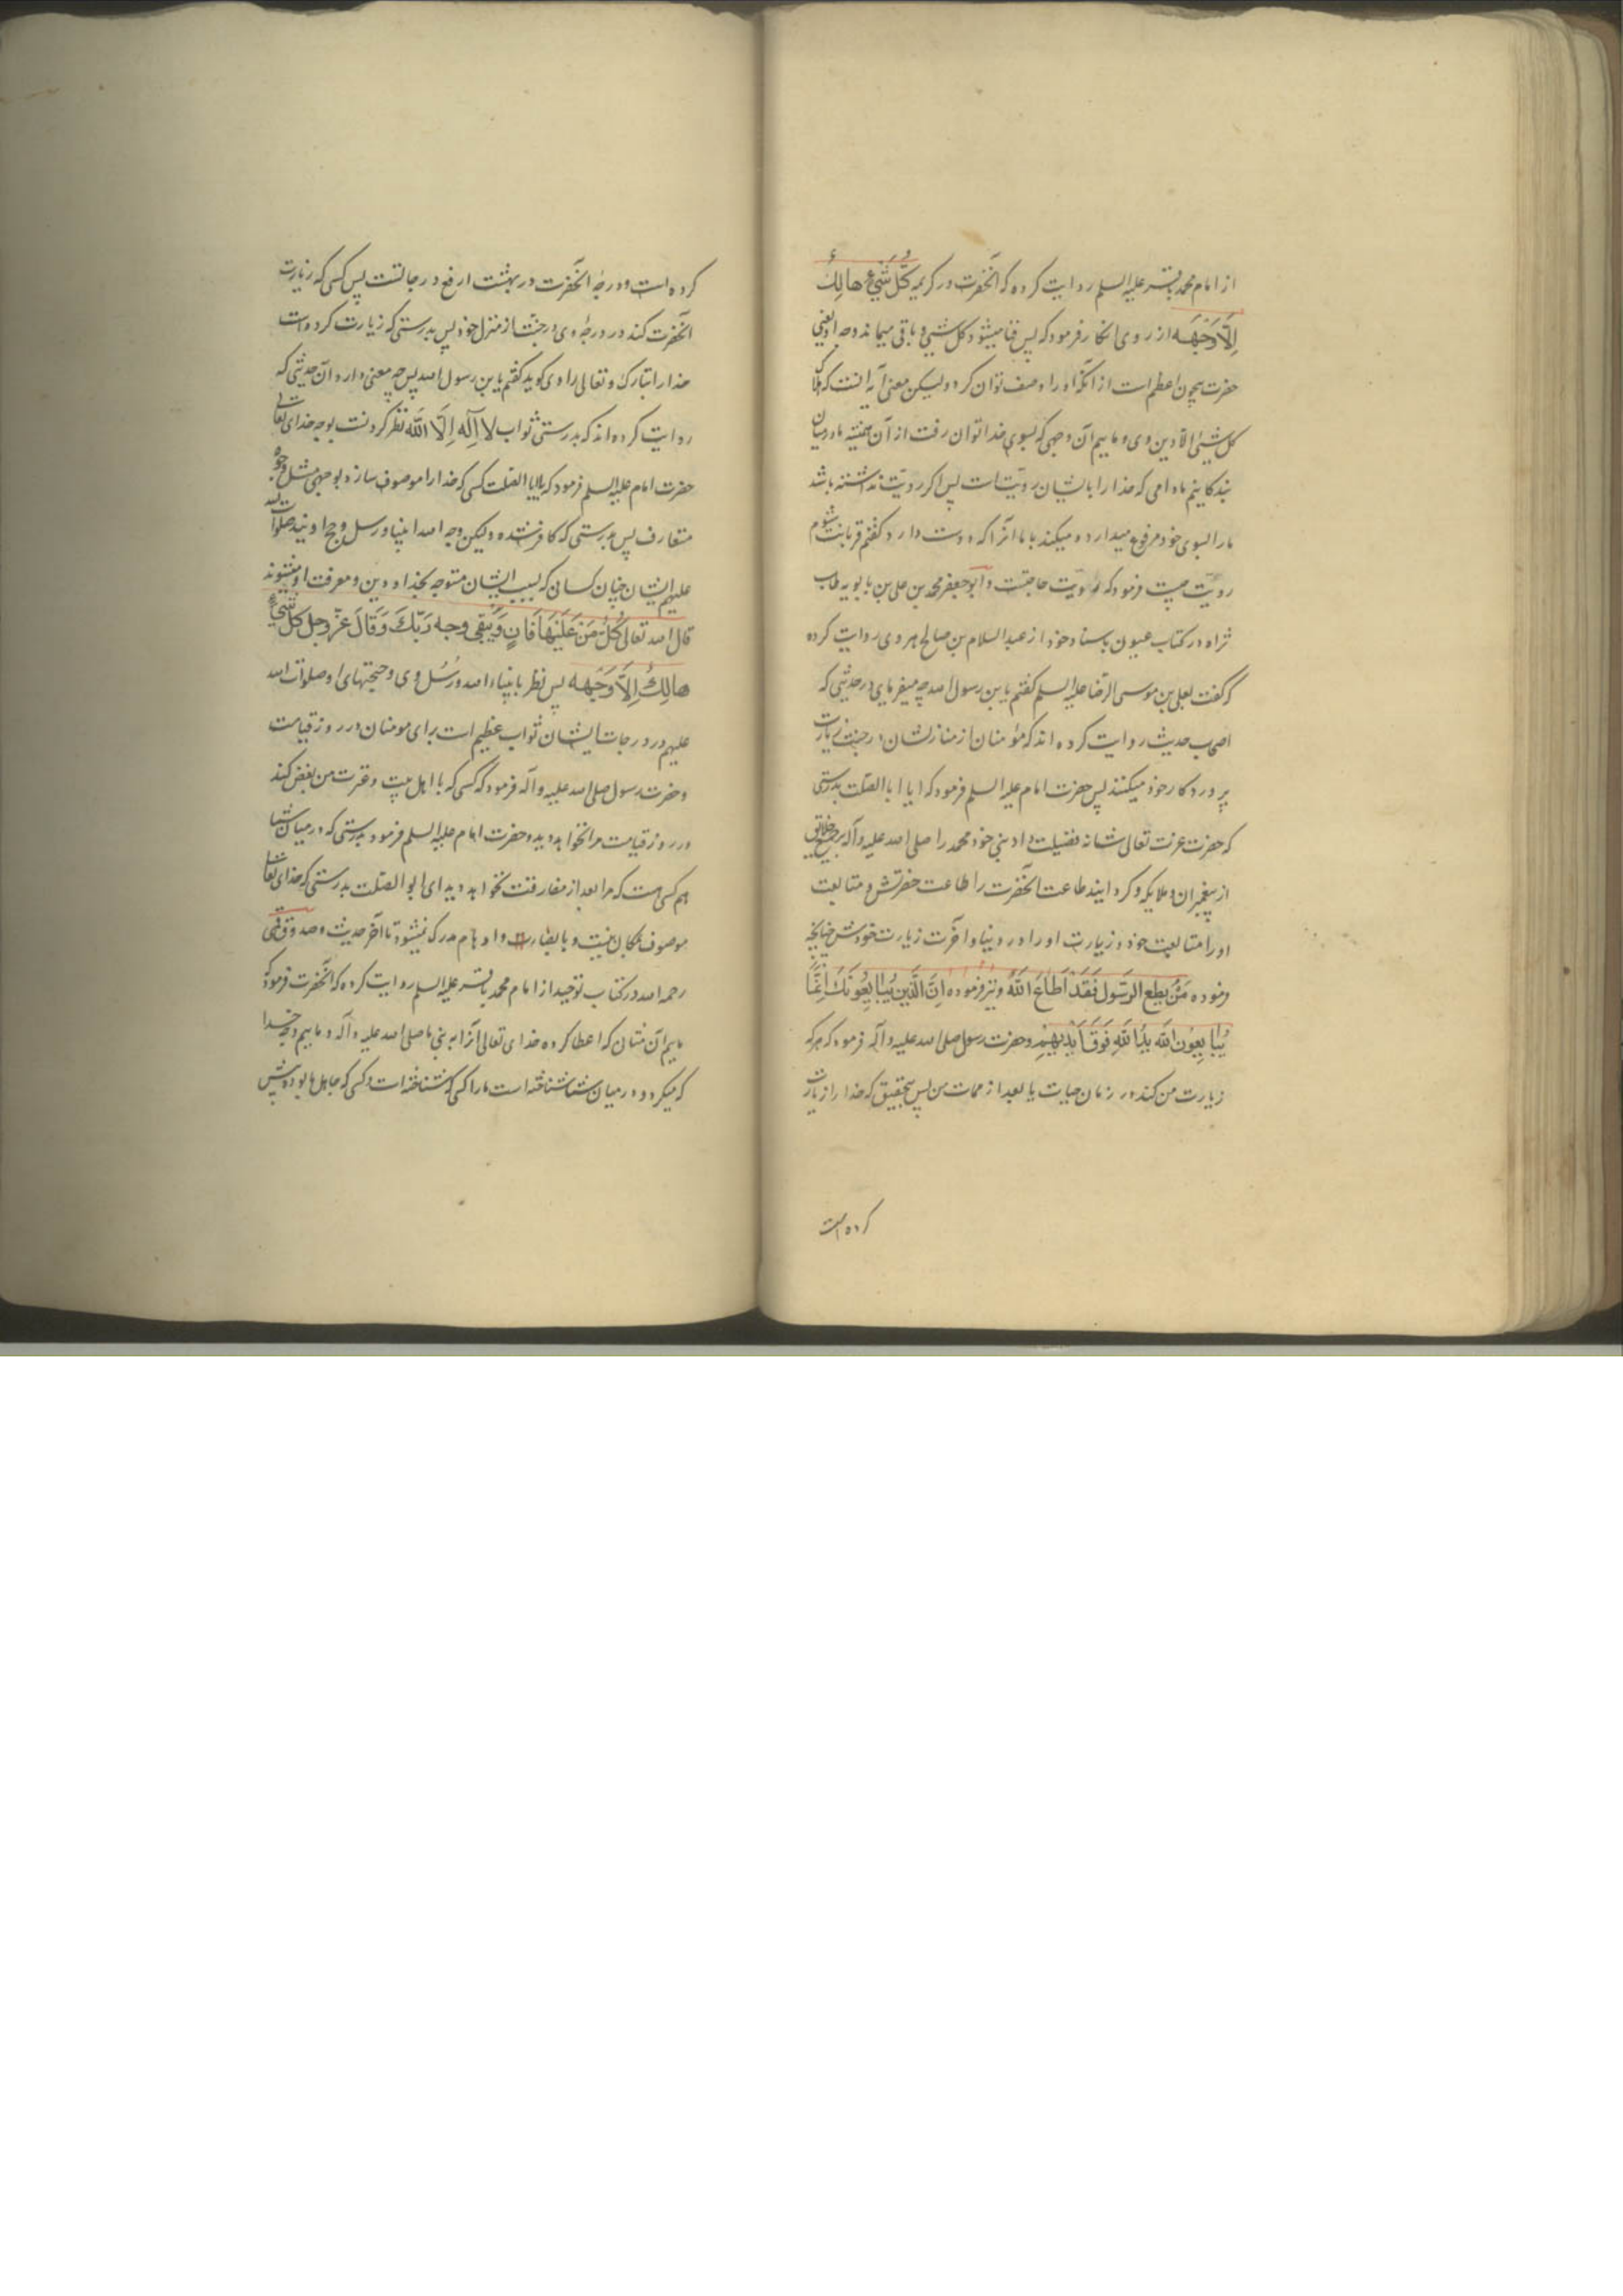 از امام محمد باقر علیه السلم روایت کرده که آنحضرت در کریمه كُلُّ شَيْءٍ هَالِكٌ
اِلَّا وَجْهَهُ از روی انکار فرمود که پس فنا میشود کل شیی و باقی میماند وجه او یعنی
حضرت بیچون اعظم است از آنکه او را وصف توان کرد ولیکن معنی آیه اینست که
کل شیئ الا دین وی و ماییم آن وجهی که بسوی خدا توان رفت از آن همیشه ما در میان
بندکانیم مادامی که خدا را بایشان رویت است پس اکر رویت نداشته باشد
ما را بسوی خود مرفوع میدارد و میکند با ما انرا که دوست دارد کفتم قربانت شوم
رویت چیست فرمود که رویت حاجتست و ابو جعفر محمد بن علی بن بابویه طاب
ثراه در کتاب عیون باسناد خود از عبد السلام بن صالح هروی روایت کرده
که گفت بعلی بن موسی الرضا علیه السلم کفتم یا بن رسول الله چه میفرمای در حدیثی که
اصحاب حدیث روایت کرده اند که مؤمنان از منازلشان در جنت زیارت
پروردکار خود میکنند پس حضرت امام علیه السلم فرمود که ایا ابا الصلت بدرستی
که حضرت عزت تعالی شانه فضیلت داد نبی خود محمد را صلی الله علیه وآله بر جمیع خلایق
از پیغمبران و ملایکه و کردانید طاعت آنحضرت را طاعت حضرتش و متابعت
او را متابعت خود و زیارت او را در دنیا و اخرت زیارت خودش چنانچه
فرموده مَنْ يُطِعِ الرَّسُولَ فَقَدْ اَطَاعَ اللهَ و نیز فرموده اِنَّ الَّذِينَ يُبَايِعُونَكَ اِنَّمَا
يُبَايِعُونَ اللهَ يَدُ اللهِ فَوْقَ اَيْدِيهِمْ و حضرت رسول صلی الله علیه وآله فرمود که هر که
زیارت من کند در زمان حیات یا بعد از ممات من پس بتحقیق که خدا را زیارت
کرده است
کرده است و درجهٔ آنحضرت در بهشت ارفع درجاتست پس کسی که زیارت
آنحضرت کند در درجهٔ وی در جنت از منزل خود پس بدرستی که زیارت کرده است
خدا را تبارک و تعالی راوی کوید کفتم یا بن رسول الله پس چه معنی دارد آن حدیثی که
روایت کرده اند که بدرستی ثواب لا اِلٰهَ اِلَّا اللهُ نظر کردنست بوجه خدای تعالی
حضرت امام علیه السلم فرمود که یا ابا الصلت کسی که خدا را موصوف سازد بوجهی مثل وجوه
متعارف پس بدرستی که کافر شده ولیکن وجه الله انبیا و رسل و حجج اویند صلوات الله
علیهم ایشان چنان کسان که بسبب ایشان متوجه بخدا و دین و معرفت او میشوند
قال الله تعالی كُلُّ مَنْ عَلَيْهَا فَانٍ وَيَبْقَى وجه رَبِّكَ وَقَالَ عَزَّ وجل كل شَيْءٍ
هالِكٌ اِلَّا وَجْهَهُ پس نظر بانبیاء الله و رسُل وی و حجتهای او صلوات الله
علیهم در درجات ایشان ثواب عظیم است برای مومنان در روز قیامت
و حضرت رسول صلی الله علیه وآله فرمود که کسی که با اهل بیت و عترت من بغض کند
در روز قیامت مرا نخواهد دید و حضرت امام علیه السلم فرمود بدرستی که در میان شما
هم کسی هست که مرا بعد از مفارقت نخواهد دید ای ابو الصلت بدرستی که خدای تعالی
موصوف بمکان نیست و بابصارت و اوهام مدرک نمیشود تا آخر حدیث و صدوق قمی
رحمه الله در کتاب توحید از امام محمد باقر علیه السلم روایت کرده که آنحضرت فرمود که
ماییم آن مثانی که اعطا کرده خدای تعالی آنرا به نبی ما صلی الله علیه وآله و ماییم وجه خدا
که میکردد در میان شما شناخته است ما را کسی که شناخته است و کسی که جاهل ما بوده پس